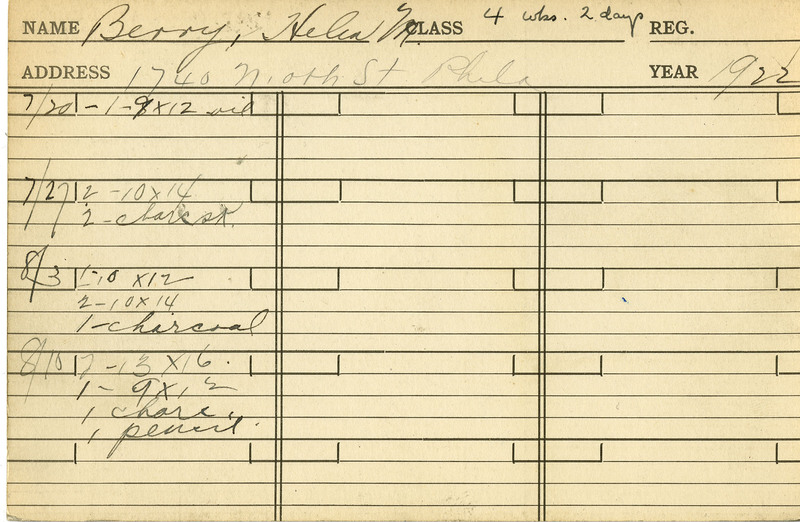 NAME Berry, Helen M. CLASS 4 wks. 2 days REG.
ADDRESS 1740 N. 10th St Phila YEAR 1922
7/20 - 1 - 9 x 12 oil
7/27 2 - 10 x 14
2 - charc sk.
8/3 1 - 10 x 12
2 - 10 x 14
1 - charcoal
8/10 2 - 13 x 16.
1 - 9 x 12
1 charc.
1 pencil.